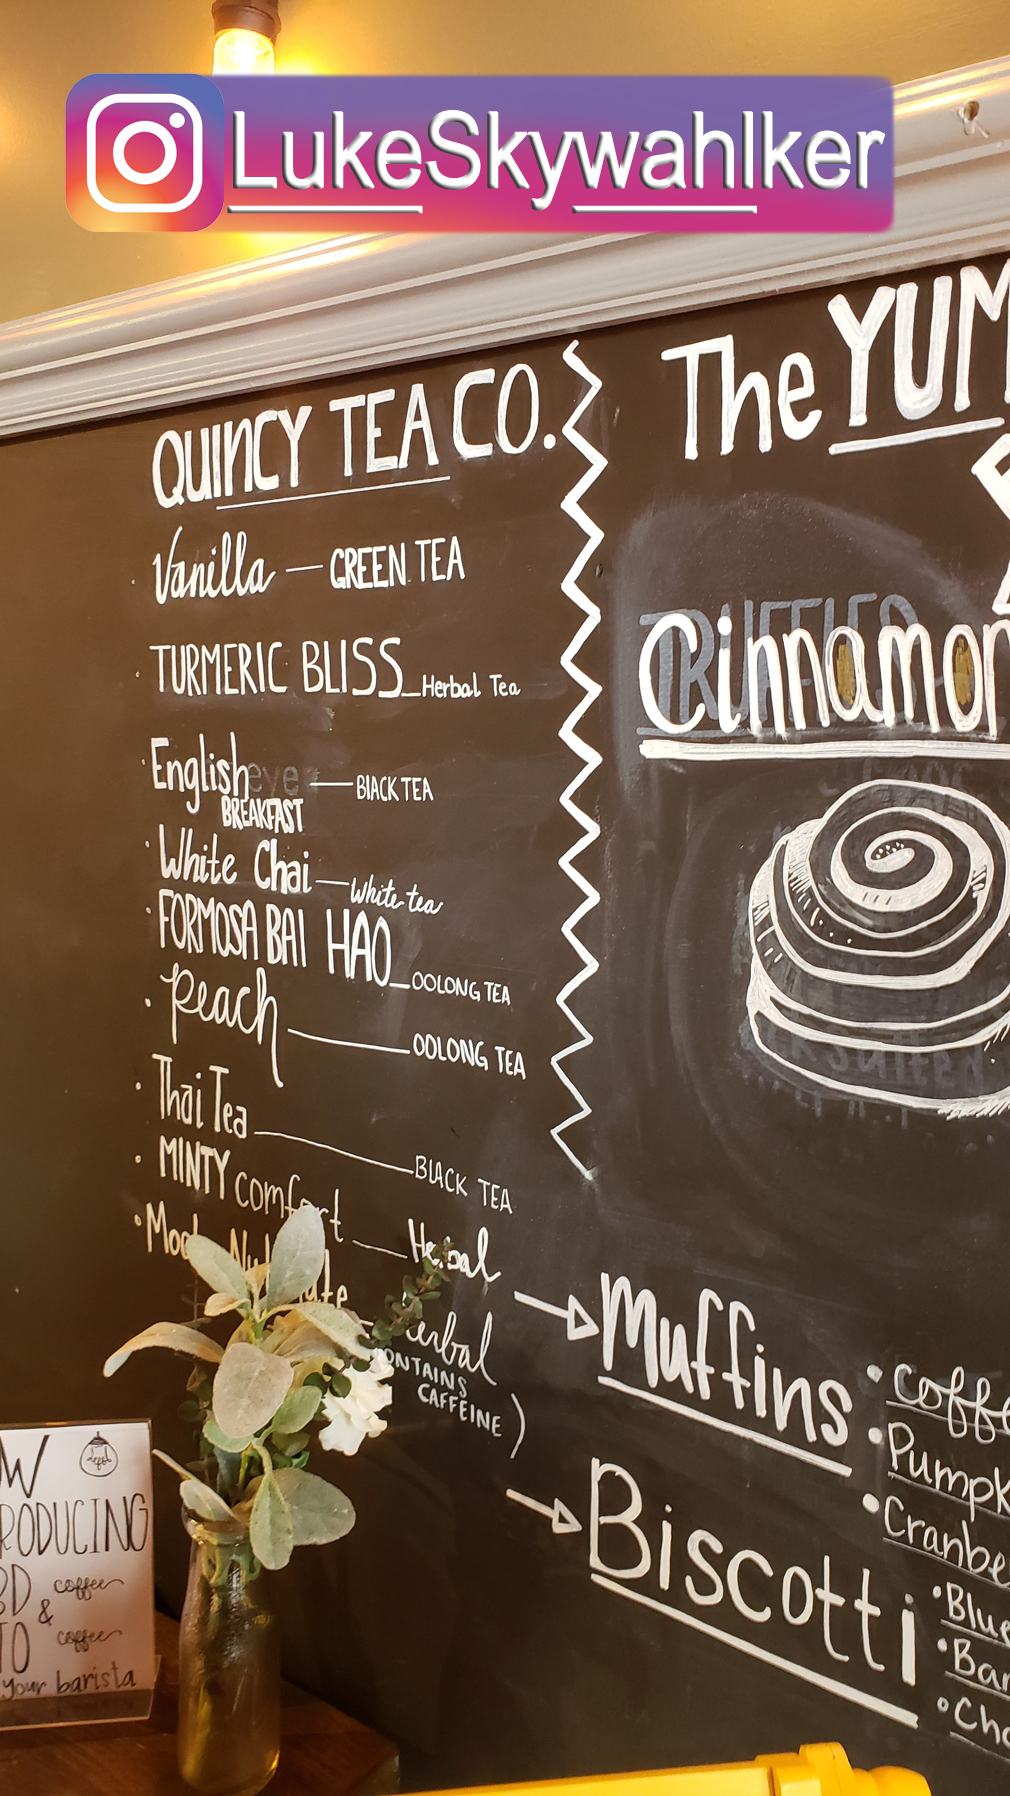 LukeSkywahlker
QUINCY TEA CO.
Vanilla — GREEN TEA
TURMERIC BLISS — Herbal Tea
English — BLACK TEA
BREAKFAST
White Chai — White tea
FORMOSA BAI HAO — OOLONG TEA
Peach — OOLONG TEA
Thai Tea — BLACK TEA
MINTY comfort — Herbal
CONTAINS
CAFFEINE)
The YUM
Cinnamon
Muffins
Coffe
Pumpk
Cranbe
Biscotti
Blue
Ban
Cho
depot
RODUCING
coffee
&
coffee
your barista